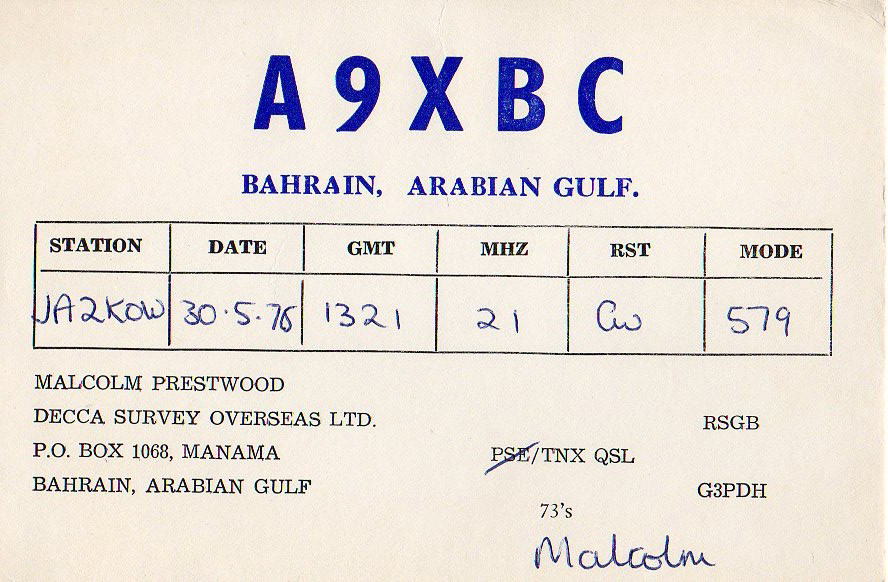 A9XBC
BAHRAIN, ARABIAN GULF.
STATION DATE GMT MHZ RST MODE
JA2KOW 30.5.76 1321 21 CW 579
MALCOLM PRESTWOOD
DECCA SURVEY OVERSEAS LTD.
RSGB
P.O. BOX 1068, MANAMA
PSE/TNX QSL
BAHRAIN, ARABIAN GULF
G3PDH
73's
Malcolm